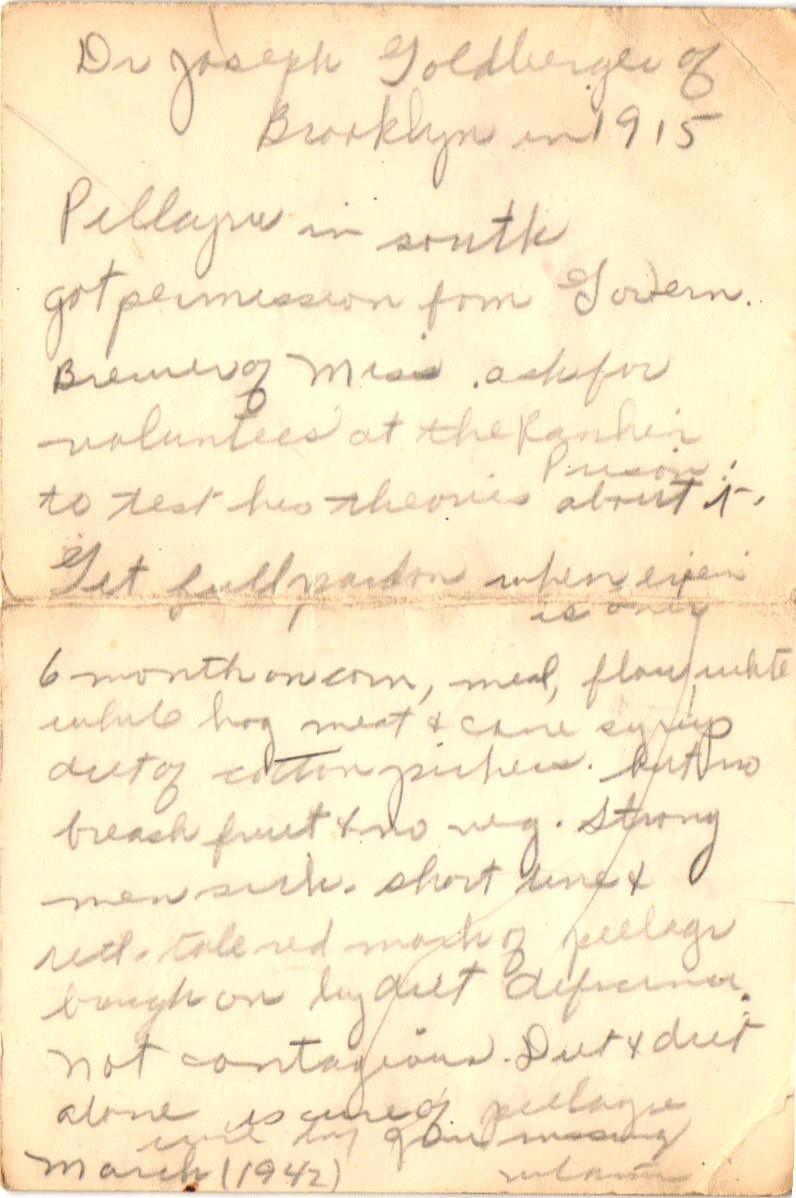 Dr Joseph Goldberger of
Brooklyn in 1915
Pellagra in south
got permission fom Govern.
Brewer of Miss. ask for
voluntees at the Rankin
Prison
to test his theories about it.
Get full pardon when
is over
6 month on corn, meal, flour, white
white hog meat & cane syrup
diet of cotton pickers. but no
fruit & no veg. Strong
men sick. short time &
tale red mark of pellagr
bough on by diet
Not contagious. Diet & diet
alone is cure of pellagra
missing
March (1942)